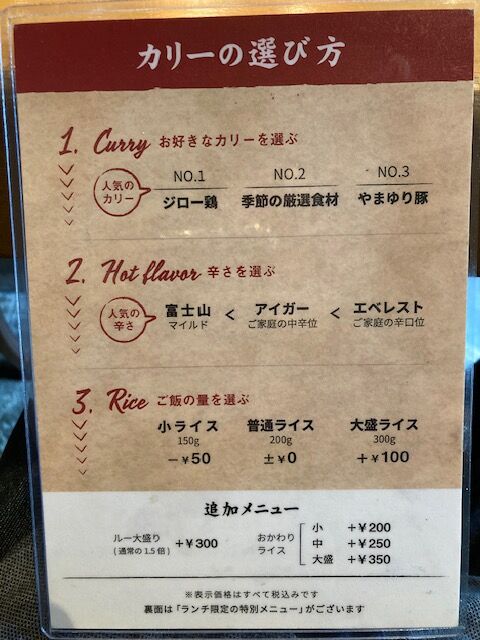 カリーの選び方
1. Curry お好きなカリーを選ぶ
人気の
カリー
NO.1 NO.2 NO.3
ジロー鶏 季節の厳選食材 やまゆり豚
2. Hot flavor 辛さを選ぶ
人気の
辛さ
富士山 < アイガー < エベレスト
マイルド ご家庭の中辛位 ご家庭の辛口位
3. Rice ご飯の量を選ぶ
小ライス 普通ライス 大盛ライス
150g 200g 300g
－¥50 ±¥0 ＋¥100
追加メニュー
ルー大盛り
(通常の1.5倍)
+¥300
おかわり
ライス
小 +¥200
中 +¥250
大盛 +¥350
※表示価格はすべて税込みです
裏面は「ランチ限定の特別メニュー」がございます